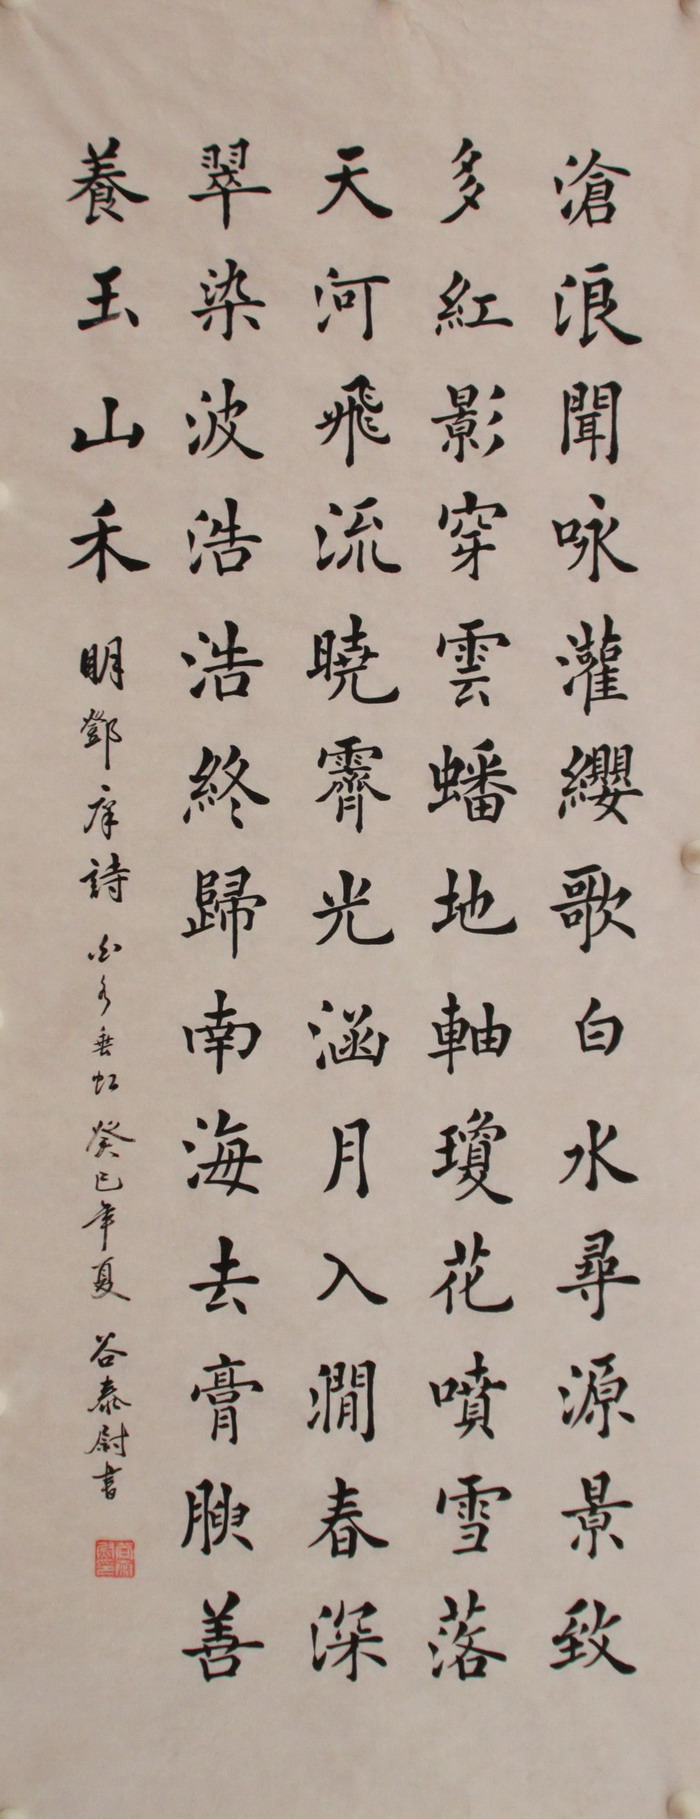 滄浪聞咏灌纓歌白水尋源景致
多紅影穿雲蟠地軸瓊花噴雪落
天河飛流曉霽光涵月入澗春深
翠染波浩浩終歸南海去膏腴善
養玉山禾 明鄧庠詩 白水垂虹 癸巳年夏 谷泰尉書